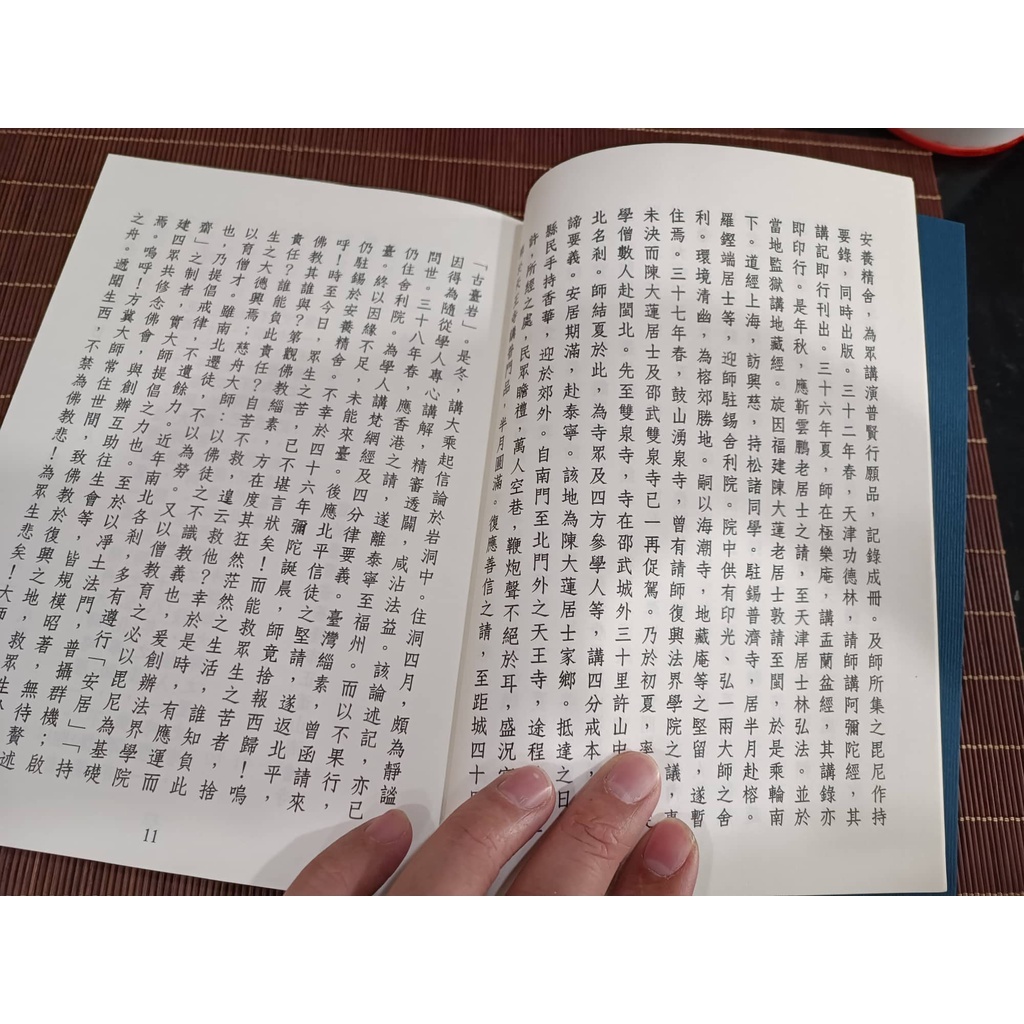 安養精舍，為眾講演普賢行願品，記錄成冊。及師所集之毘尼作持
要錄，同時出版。三十二年春，天津功德林，請師講阿彌陀經，其
講記即行刊出。三十六年夏，師在極樂庵，講盂蘭盆經，其講錄亦
即印行。是年秋，應靳雲鵬老居士之請，至天津居士林弘法。並於
當地監獄講地藏經。旋因福建陳大蓮老居士敦請至閩，於是乘輪南
下。道經上海，訪興慈，持松諸同學。駐錫普濟寺，居半月赴榕。
羅鏗端居士等，迎師駐錫舍利院。院中供有印光、弘一兩大師之舍
利。環境清幽，為榕郊勝地。嗣以海潮寺，地藏庵等之堅留，遂暫
住焉。三十七年春，鼓山湧泉寺，曾有請師復興法界學院之議，事
未決而陳大蓮居士及邵武雙泉寺已一再促駕。乃於初夏，率
學僧數人赴閩北。先至雙泉寺，寺在邵武城外三十里許山中
北名剎。師結夏於此，為寺眾及四方參學人等，講四分戒本，
諦要義。安居期滿，赴泰寧。該地為陳大蓮居士家鄉。抵達之日
縣民手持香華，迎於郊外。自南門至北門外之天王寺，途程
許，所經之處，民眾瞻禮，萬人空巷，鞭炮聲不絕於耳，盛況
講普門品，半月圓滿。復應善信之請，至距城四十
「古臺岩」。是冬，講大乘起信論於岩洞中。住洞四月，頗為靜謐
因得為隨從學人專心講解，精審透闢，咸沾法益。該論述記，亦已
問世。三十八年春，應香港之請，遂離泰寧至福州。而以不果行，
仍住舍利院。為學人講梵網經及四分律要義。臺灣緇素，曾函請來
臺。終以因緣不足，未能來臺。後應北平信徒之堅請，遂返北平，
仍駐錫於安養精舍。不幸於四十六年彌陀誕晨，師竟捨報西歸！嗚
呼！時至今日，眾生之苦，已不堪言狀矣！而能救眾生之苦者，捨
佛教其誰與？第觀佛教緇素，方在度其狂然茫然之生活，誰知負此
責任？誰能負此責任？自苦不救，遑云救他？幸於是時，有應運而
生之大德興焉；慈舟大師：以佛徒之不識教義也，爰創辦法界學院
以育僧才。雖南北遷徒，不以為勞。又以僧教育之必以毘尼為基礎
也，乃提倡戒律，不遺餘力。近年南北各剎，多有遵行「安居」「持
齋」之制者，實大師提倡之力也。至於以淨土法門，普攝群機；啟
建四眾共修念佛會，與創辦互助往生會等，皆規模昭著，無待贅述
焉。嗚呼！方冀大師常住世間，致佛教於復興之地，救眾生
之舟。遽聞生西，不禁為佛教悲！為眾生悲矣！大師
11